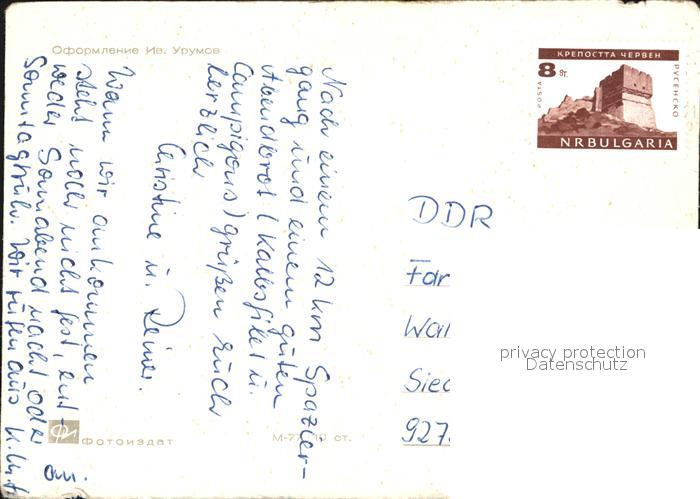 Оформление Ив. Урумов
КРЕПОСТТА ЧЕРВЕН
8 St.
POSTA
РУСЕНСКО
NRBULGARIA
Nach einem 12 km Spazier-
gang und einem guten
Abendbrot (Kalbsfilet u.
Campigons) grüßen Euch
herzlich
Christine u. Reiner.
Wann wir ankommen
steht noch nicht fest, ent-
weder Sonnabend nacht oder
Sonntagfrüh. Wir rufen aus K.M.St
an.
DDR
Fa
Wa
Sie
927.
privacy protection
Datenschutz
ФИ Фотоиздат
М-77 10 ст.